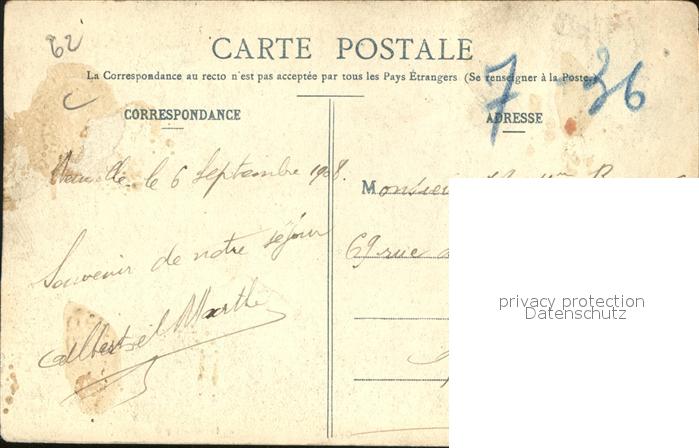 62
CARTE POSTALE
La Correspondance au recto n'est pas acceptée par tous les Pays Étrangers (Se renseigner à la Poste.)
7 - 36
C
CORRESPONDANCE
ADRESSE
le 6 Septembre 1908.
Monsieur
69 rue
Souvenir de notre séjour
Albert et Marthe
privacy protection
Datenschutz